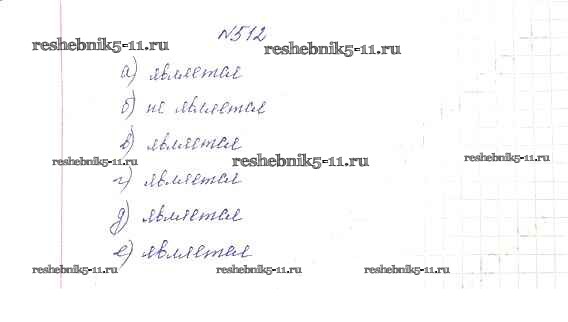 №512
reshebnik5-11.ru reshebnik5-11.ru
а) является
б) не является
в) является
reshebnik5-11.ru reshebnik5-11.ru reshebnik5-11.ru
г) является
д) является
е) является
reshebnik5-11.ru reshebnik5-11.ru reshebnik5-11.ru